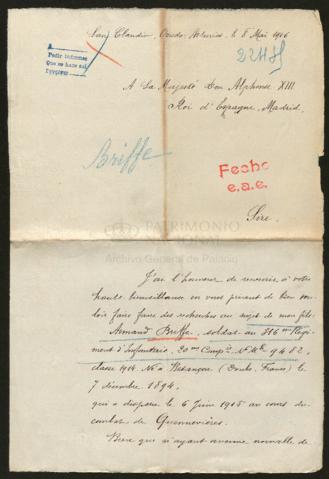 San Claudio, Oviedo, Asturias, le 8 Mai 1916
A
Pedir informes
Que se hace así
22475
A Sa Majesté Don Alphonse XIII
Roi d'Espagne, Madrid.
Briffe
Fecho
e.a.e.
Sire,
PATRIMONIO
NACIONAL
Archivo General de Palacio
J'ai l'honneur de recourir à votre
haute bienveillance en vous priant de bien vou-
loir faire faire des recherches au sujet de mon fils:
Armand Briffe, soldat au 316me Régi-
ment d'Infanterie, 20me Compie, No Mle 9482,
classe 1914. Né à Besançon (Doubs, France) le
7 décembre 1894,
qui a disparu le 6 Juin 1915 au cours du
combat de Quennevières.
Bien que n'ayant aucune nouvelle de